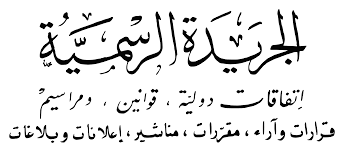 الجريدة الرسمية
إتفاقات دولية ، قوانين ، ومراسيم
قرارات وآراء ، مقررات ، مناشير ، إعلانات وبلاغات